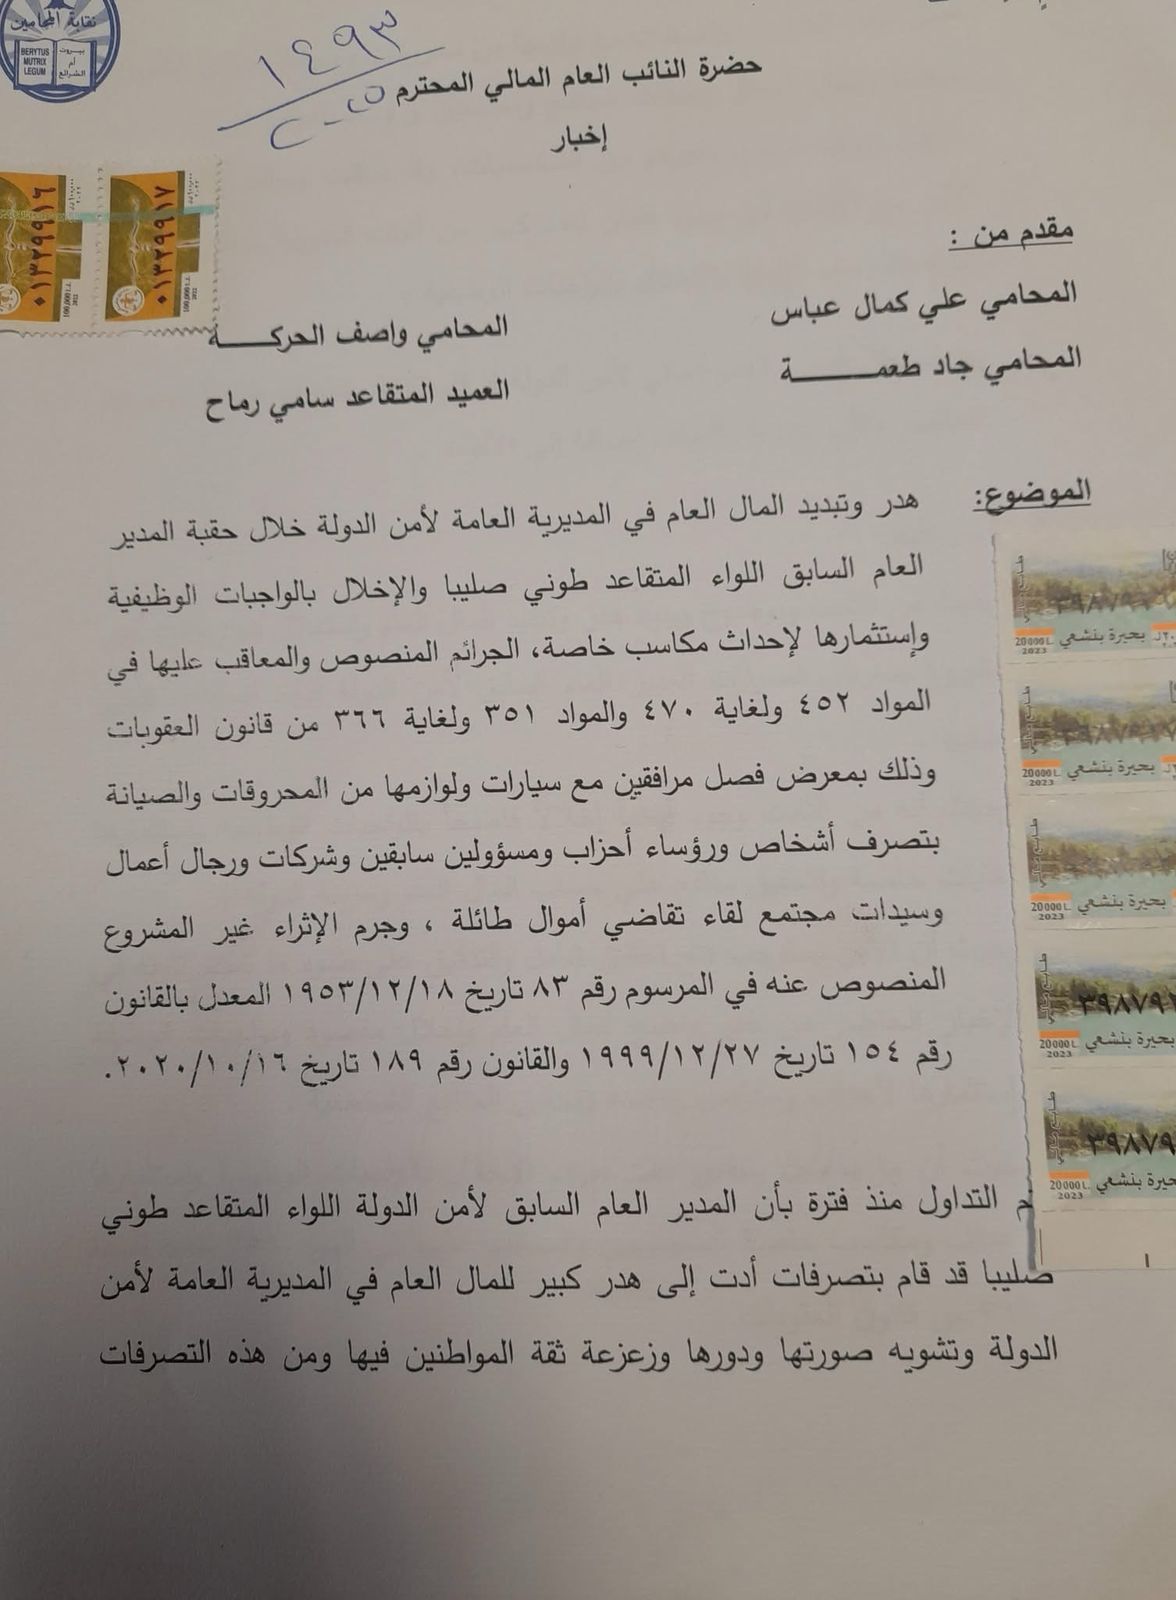 نقابة المحامين
BERYTUS
MUTRIX
LEGUM
بيروت
أم
الشرائع
١٤٩٣
حضرة النائب العام المالي المحترم
إخبار
٠١٣٢٩٩١٦
٠١٣٢٩٩١٧
100,000 L.L.
2022
مقدم من :
المحامي علي كمال عباس
المحامي واصف الحركـــــة
المحامي جاد طعمـــــــــة
العميد المتقاعد سامي رماح
الموضوع:
هدر وتبديد المال العام في المديرية العامة لأمن الدولة خلال حقبة المدير
العام السابق اللواء المتقاعد طوني صليبا والإخلال بالواجبات الوظيفية
وإستثمارها لإحداث مكاسب خاصة، الجرائم المنصوص والمعاقب عليها في
المواد ٤٥٢ ولغاية ٤٧٠ والمواد ٣٥١ ولغاية ٣٦٦ من قانون العقوبات
وذلك بمعرض فصل مرافقين مع سيارات ولوازمها من المحروقات والصيانة
بتصرف أشخاص ورؤساء أحزاب ومسؤولين سابقين وشركات ورجال أعمال
وسيدات مجتمع لقاء تقاضي أموال طائلة ، وجرم الإثراء غير المشروع
المنصوص عنه في المرسوم رقم ٨٣ تاريخ ١٩٥٣/١٢/١٨ المعدل بالقانون
رقم ١٥٤ تاريخ ١٩٩٩/١٢/٢٧ والقانون رقم ١٨٩ تاريخ ٢٠٢٠/١٠/١٦.
20000 L.
2023
بحيرة بنشعي
20000 L.
2023
بحيرة بنشعي
20000 L.
2023
بحيرة بنشعي
20000 L.
2023
بحيرة بنشعي
20000 L.
2023
بحيرة بنشعي
التداول منذ فترة بأن المدير العام السابق لأمن الدولة اللواء المتقاعد طوني
صليبا قد قام بتصرفات أدت إلى هدر كبير للمال العام في المديرية العامة لأمن
الدولة وتشويه صورتها ودورها وزعزعة ثقة المواطنين فيها ومن هذه التصرفات